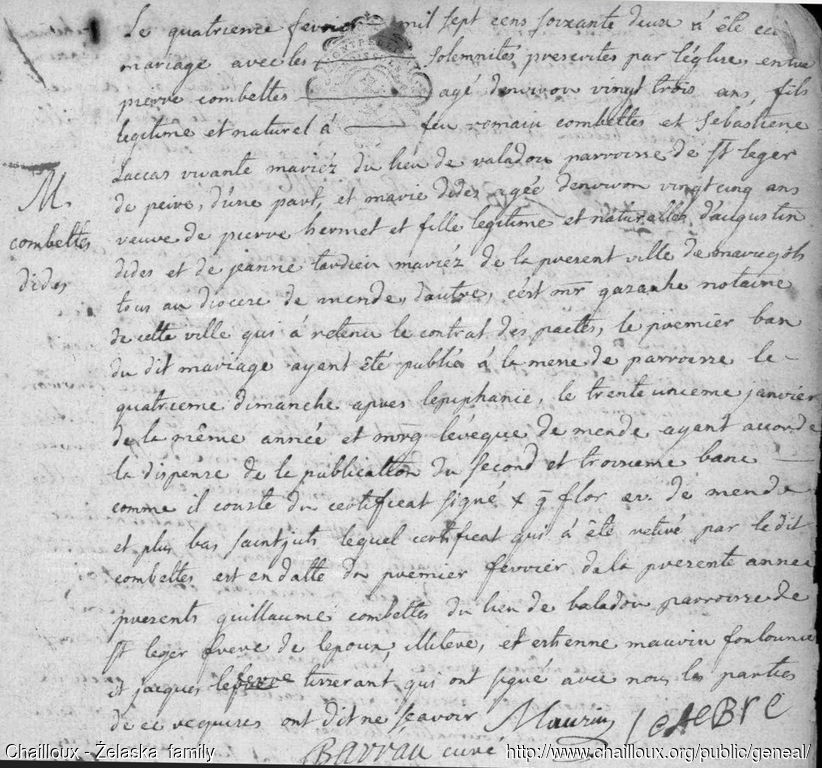 Le quatrieme fevrier mil sept cens soixante deux a été ce
mariage avec les solemnités prescrites par l'église, entre
pierre combettes agé denviron vingt trois ans, fils
legitime et naturel á feu romain combettes et Sebastiene
Laccas vivante mariéz du lieu de valadou parroisse de st leger
de peire, d'une part, et marie dides agée denviron vingt cinq ans
veuve de pierre hermet et fille legitime et naturelle d'augustin
dides et de jeanne tardieu mariéz de la presente ville de
tous au diocese de mende, d'autre, c'est mr gazanhe notaire
de cette ville qui á retenu le contrat des pactes, le premier ban
du dit mariage ayant été publié á la messe de parroisse le
quatrieme dimanche apres lepiphanie, le trente unieme janvier
de la même année et mrg lévéque de mende ayant accordé
la dispense de la publication du second et troisieme banc
comme il conste du certificat signé + flor ev. de mende
et plus bas saintjuts lequel certificat qui á été retiré par le dit
combettes est en datte du premier fevrier de la presente annee
presents guillaume combettes du lieu de baladou parroisse de
st leger frere de lepoux, illiteré, et estienne maurin
et jacques lefevre tisserant qui ont signé avec nous les parties
de ce requises ont dit ne scavoir Maurin leFeBre
Barrau curé
M.
combettes
dides
Chailloux - Żelaska family
http://www.chailloux.org/public/geneal/